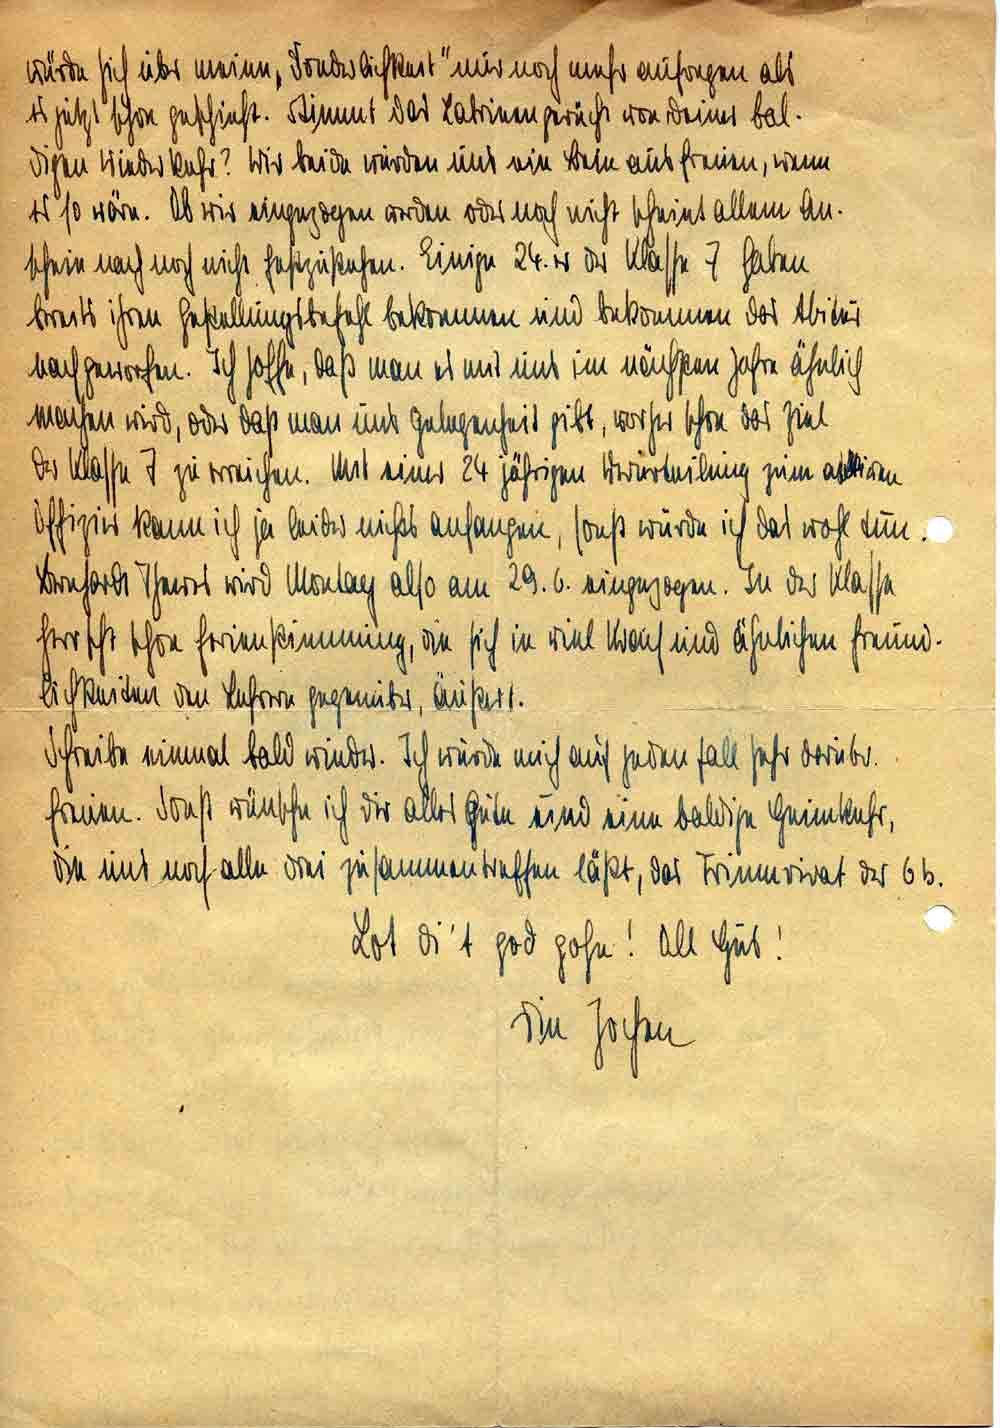 würde sich über meine „Sonderlichkeit" nur noch mehr aufregen als
es jetzt schon geschieht. Stimmt das Latrinengerücht von Deiner bal-
digen Wiederkehr? Wir beide würden uns ein Bein ausfreuen, wenn
es so wäre. Ob wir eingezogen werden oder noch nicht scheint allem An-
schein nach noch nicht festzustehen. Einige 24.er der Klasse 7 haben
bereits ihren Gestellungsbefehl bekommen und bekommen das Abitur
nachgeworfen. Ich hoffe, daß man es mit uns im nächsten Jahre ähnlich
machen wird, oder daß man uns Gelegenheit gibt, vorher schon das Ziel
der Klasse 7 zu erreichen. Mit einer 24 jährigen Verurteilung zum aktiven
Offizier kann ich ja leider nichts anfangen, sonst würde ich das wohl tun.
Bernhard Thewes wird Montag also am 29.6. eingezogen. In der Klasse
herrscht schon Ferienstimmung, die sich in viel Krach und ähnlichen Freund-
lichkeiten den Lehrern gegenüber, äußert.
Schreibe einmal bald wieder. Ich würde mich auf jeden Fall sehr darüber
freuen. Sonst wünsche ich Dir alles Gute und eine baldige Heimkehr,
die uns noch alle drei zusammentreffen läßt, das Triumvirat der 6b.
Lot di't god gohn! All Guts!
Din Jochen